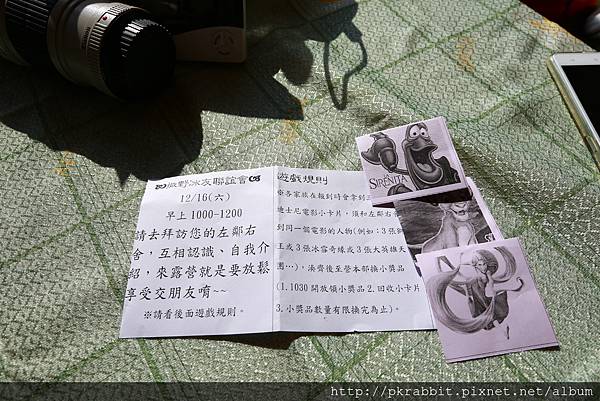 野冰友聯誼會
12/16(六)
早上 1000-1200
請去拜訪您的左鄰右
舍，互相認識、自我介
紹，來露營就是要放鬆
享受交朋友唷~~
※請看後面遊戲規則。
遊戲規則
※各家族在報到時會拿到三
迪士尼電影小卡片，須和左鄰右
到同一個電影的人物(例如：3 張獅
王或 3 張冰雪奇緣或 3 張大英雄天
團…)，湊齊後至營本部換小獎品
(1.1030 開放領小獎品 2.回收小卡片
3.小獎品數量有限換完為止)。
SIRENITA
http://pkrabbit.pixnet.net/album